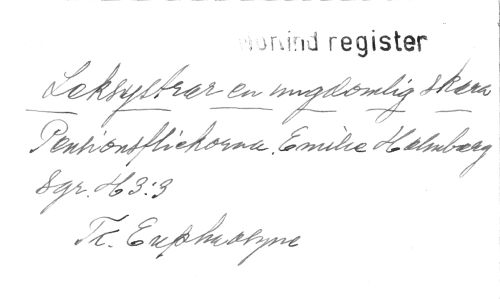 register
Leksystrar en ungdomlig skara
Pensionsflickorna. Emilie Holmberg
Sgr. H3:3
Tr. Euphrosyne